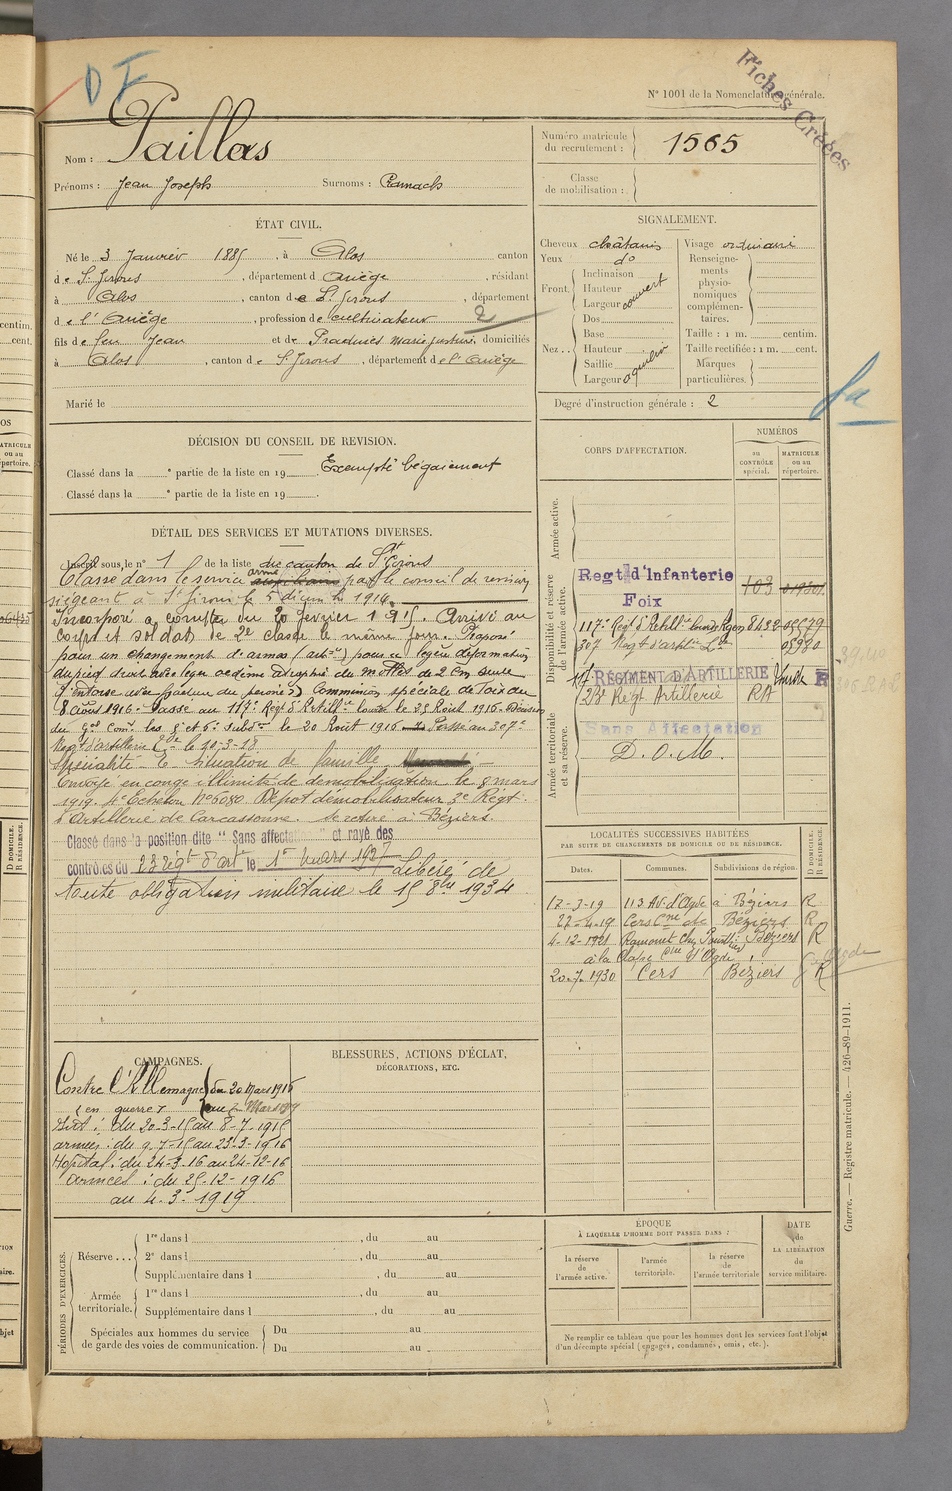 D F
Fiches Créées
N° 1001 de la Nomenclature générale.
Nom : Paillas
Prénoms : Jean Joseph Surnoms : Ramach
Numéro matricule du recrutement : 1565
Classe de mobilisation :
ÉTAT CIVIL.
Né le 3 Janvier 1885, à Alos canton
de St Girons, département d Ariège, résidant
à Alos, canton de St Girons, département
de l'Ariège, profession de cultivateur 2
fils de feu Jean et de Pradines Marie Justine, domiciliés
à Alos, canton de St Girons, département de l'Ariège
Marié le
SIGNALEMENT.
Cheveux châtains
Yeux do
Front. Inclinaison
Hauteur couvert
Largeur
Nez.. Dos
Base
Hauteur
Saillie aquilin
Largeur
Visage ordinaire
Renseignements physionomiques complémentaires.
Taille : 1 m. centim.
Taille rectifiée : 1 m. cent.
Marques particulières.
Degré d'instruction générale : 2
DÉCISION DU CONSEIL DE REVISION.
Classé dans la e partie de la liste en 19 Exempté bégaiement
Classé dans la e partie de la liste en 19 .
DÉTAIL DES SERVICES ET MUTATIONS DIVERSES.
Inscrit sous le n° 1 de la liste du canton de St Girons
Classé dans le service armé par le conseil de revision
siégeant à St Girons le 5 décembre 1914.
Incorporé à compter du 20 février 1915. Arrivé au
corps et soldat de 2e classe le même jour. Proposé
pour un changement d'armes (artie) pour légère déformation
du pied droit avec léger oedème
Commission spéciale de Foix du
8 août 1916. Passé au 117e Régt d'Artillie lourde le 25 Août 1916. Décision
du Gal Comt les 5 et 6e Subdons le 20 Août 1916. Passé au 307e
Regt d'artillerie Lde le 10-3-18.
Spécialité - Situation de famille
Envoyé en congé illimité de démobilisation le 8 mars
1919. 4e Echelon N° 6080 Dépot démobilisateur 3e Régt
d'Artillerie de Carcassonne. Se retire à Béziers.
Classé dans la position dite "Sans affectation" et rayé des
contrôles du 23 Régt d'art le 1er mars 1927 Libéré de
toute obligation militaire le 15 8bre 1934
CORPS D'AFFECTATION.
NUMÉROS
au CONTRÔLE spécial.
MATRICULE ou au répertoire.
Armée active.
Disponibilité et réserve de l'armée active.
Regt d'Infanterie
Foix
117e Régt d'Artillie lourde 8432
307 Regt d'artie Lde 05980
117 RÉGIMENT D'ARTILLERIE
23e Régt Artillerie RA
Armée territoriale et sa réserve.
Sans Affectation
D. O. M.
LOCALITÉS SUCCESSIVES HABITÉES
PAR SUITE DE CHANGEMENTS DE DOMICILE OU DE RÉSIDENCE.
Dates. Communes. Subdivisions de région. D DOMICILE. R RÉSIDENCE.
12-3-19 113 Av. d'Agde à Béziers R
22-4-19 Cers Cne de Béziers R
4-12-1921 Ramonet Chez Béziers R
à la Cne d'Agde
20-7-1930 Cers Béziers R
CAMPAGNES.
Contre l'Allemagne du 20 Mars 1915
(en guerre) au Mars 1919
Int : du 20-3-15 au 8-7-1915
armées : du 9-7-15 au 23-3-1916
Hopital : du 24-3-16 au 24-12-16
armées : du 25-12-1916
au 4-3-1919
BLESSURES, ACTIONS D'ÉCLAT,
DÉCORATIONS, ETC.
PÉRIODES D'EXERCICES.
Réserve... 1re dans l , du au
2e dans l , du au
Supplémentaire dans l , du au
Armée territoriale. 1re dans l , du au
Supplémentaire dans l , du au
Spéciales aux hommes du service de garde des voies de communication. Du au
Du au
ÉPOQUE
À LAQUELLE L'HOMME DOIT PASSER DANS :
la réserve de l'armée active.
l'armée territoriale.
la réserve de l'armée territoriale
DATE de LA LIBÉRATION du service militaire.
Ne remplir ce tableau que pour les hommes dont les services font l'objet
d'un décompte spécial (engagés, condamnés, omis, etc.).
Guerre. — Registre matricule. — 426-89-1911.